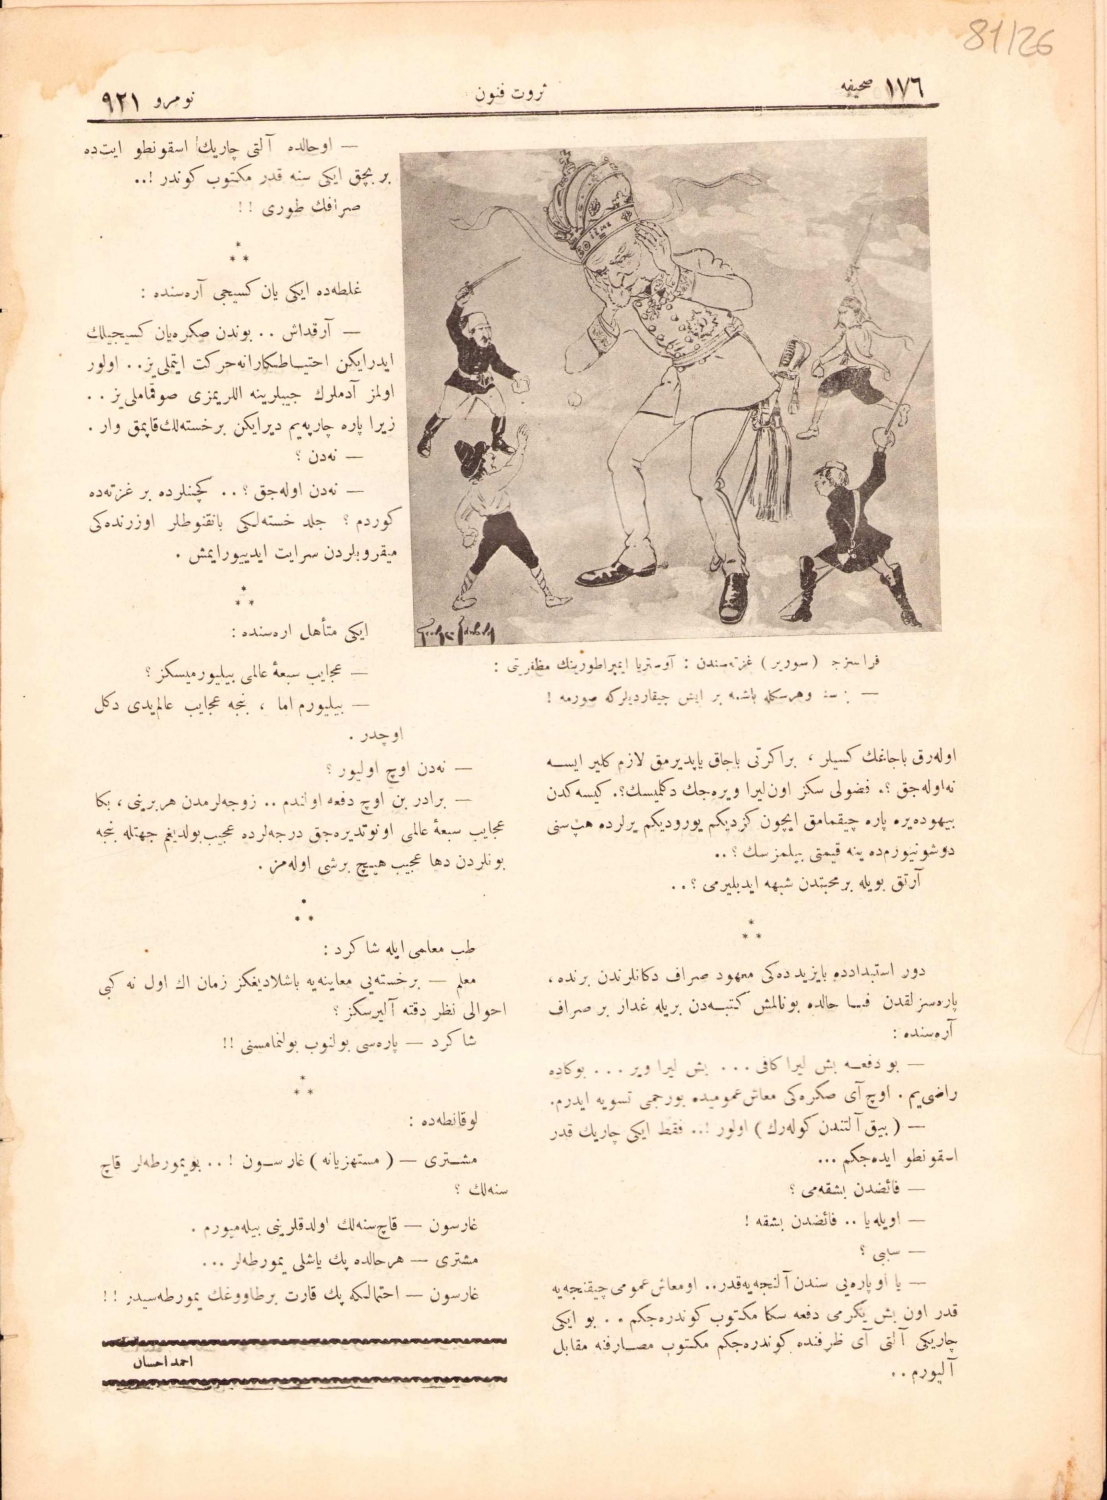 81/26
صحیفه ١٧٦
ثروت فنون
نومرو ٩٢١
فرانسزجه (سوریر) غزته‌سندن : آوستریا ایمپراطورینك مظفریتی :
— وهرسکله باشمه بر ایش چیقاردیلرکه صورمه !
اوله‌رق باجاغك کسیلر ، براکرتی باجاق یاپدیرمق لازم کلیر ایسه
نه‌اوله‌جق ؟. فضولی سکز اون‌لیرا ویره‌جك دکلمیسك؟. کیسه‌کدن
بیهوده‌یره پاره چیقمامق ایچون کزدیکم یورودیکم یرلرده هپ‌سنی
دوشونیورم‌ده ینه قیمتی بیلمزسك ؟ ..
آرتق بویله برمحبتدن شبهه ایدیلیرمی ؟ ..
* * *
دور استبدادده بایزیدده‌کی معهود صراف دکانلرندن برنده ،
پاره‌سزلقدن فنا حالده بوکالمش کتبه‌دن بریله غدار بر صراف
آره‌سنده :
— بو دفعه بش لیرا کافی ... بش لیرا ویر ... بوکاده
راضی‌یم . اوچ آی صکره‌کی معاش‌عمومیده بورجمی تسویه ایدرم.
— ( بییق آلتندن کوله‌رك ) اولور !.. فقط ایکی چاریك قدر
اسقونطو ایده‌جکم ...
— فائضدن بشقه‌می ؟
— اویله‌یا .. فائضدن بشقه !
— سببی ؟
— یا او پاره‌یی سندن آلنجه‌یه‌قدر.. اومعاش عمومی چیقنجه‌یه
قدر اون بش یکرمی دفعه سکا مکتوب کوندره‌جکم .. بو ایکی
چاریکی آلتی آی ظرفنده کوندره‌جکم مکتوب مصارفنه مقابل
آلیورم ..
— اوحالده آلتی چاریك اسقونطو ایت‌ده
بربچق ایکی سنه قدر مکتوب کوندر !..
صرافك طوری !!
* * *
غلطه‌ده ایکی یان کسیجی آره‌سنده :
— آرقداش .. بوندن صکره‌یان کسیجیلك
ایدرایکن احتیاطکارانه‌حرکت ایتملی‌یز.. اولور
اولمز آدملرك جیبلرینه اللریمزی صوقماملی‌یز ..
زیرا پاره چارپه‌یم دیرایکن برخسته‌لك‌قاپمق وار .
— نه‌دن ؟
— نه‌دن اوله‌جق ؟ .. کچنلرده بر غزته‌ده
کوردم ؟ جلد خسته‌لکی بانقنوطلر اوزرنده‌کی
میقروبلردن سرایت ایدییورایمش .
* * *
ایکی متأهل اره‌سنده :
— عجایب سبعهٔ عالمی بیلیورمیسکز ؟
— بیلیورم اما ، بنجه عجایب عالم‌یدی دکل
اوچدر .
— نه‌دن اوچ اولیور ؟
— برادر بن اوچ دفعه اولندم .. زوجه‌لرمدن هربرینی ، بکا
عجایب سبعهٔ عالمی اونوتدیره‌جق درجه‌لرده عجیب‌بولدیغم جهتله بنجه
بونلردن دها عجیب هیچ برشی اوله‌مز .
* * *
طب معلمی ایله شاکرد :
معلم — برخسته‌یی معاینه‌یه باشلادیغکز زمان اك اول نه کبی
احوالی نظر دقته آلیرسکز ؟
شاکرد — پاره‌سی بولنوب بولنمامسنی !!
* * *
لوقانطه‌ده :
مشتری — ( مستهزیانه ) غارسون ! .. بویمورطه‌لر قاچ
سنه‌لك ؟
غارسون — قاچ‌سنه‌لك اولدقلرینی بیله‌میورم .
مشتری — هرحالده پك یاشلی یمورطه‌لر ...
غارسون — احتمالکه پك قارت برطاووغك یمورطه‌سیدر !!
احمد احسان